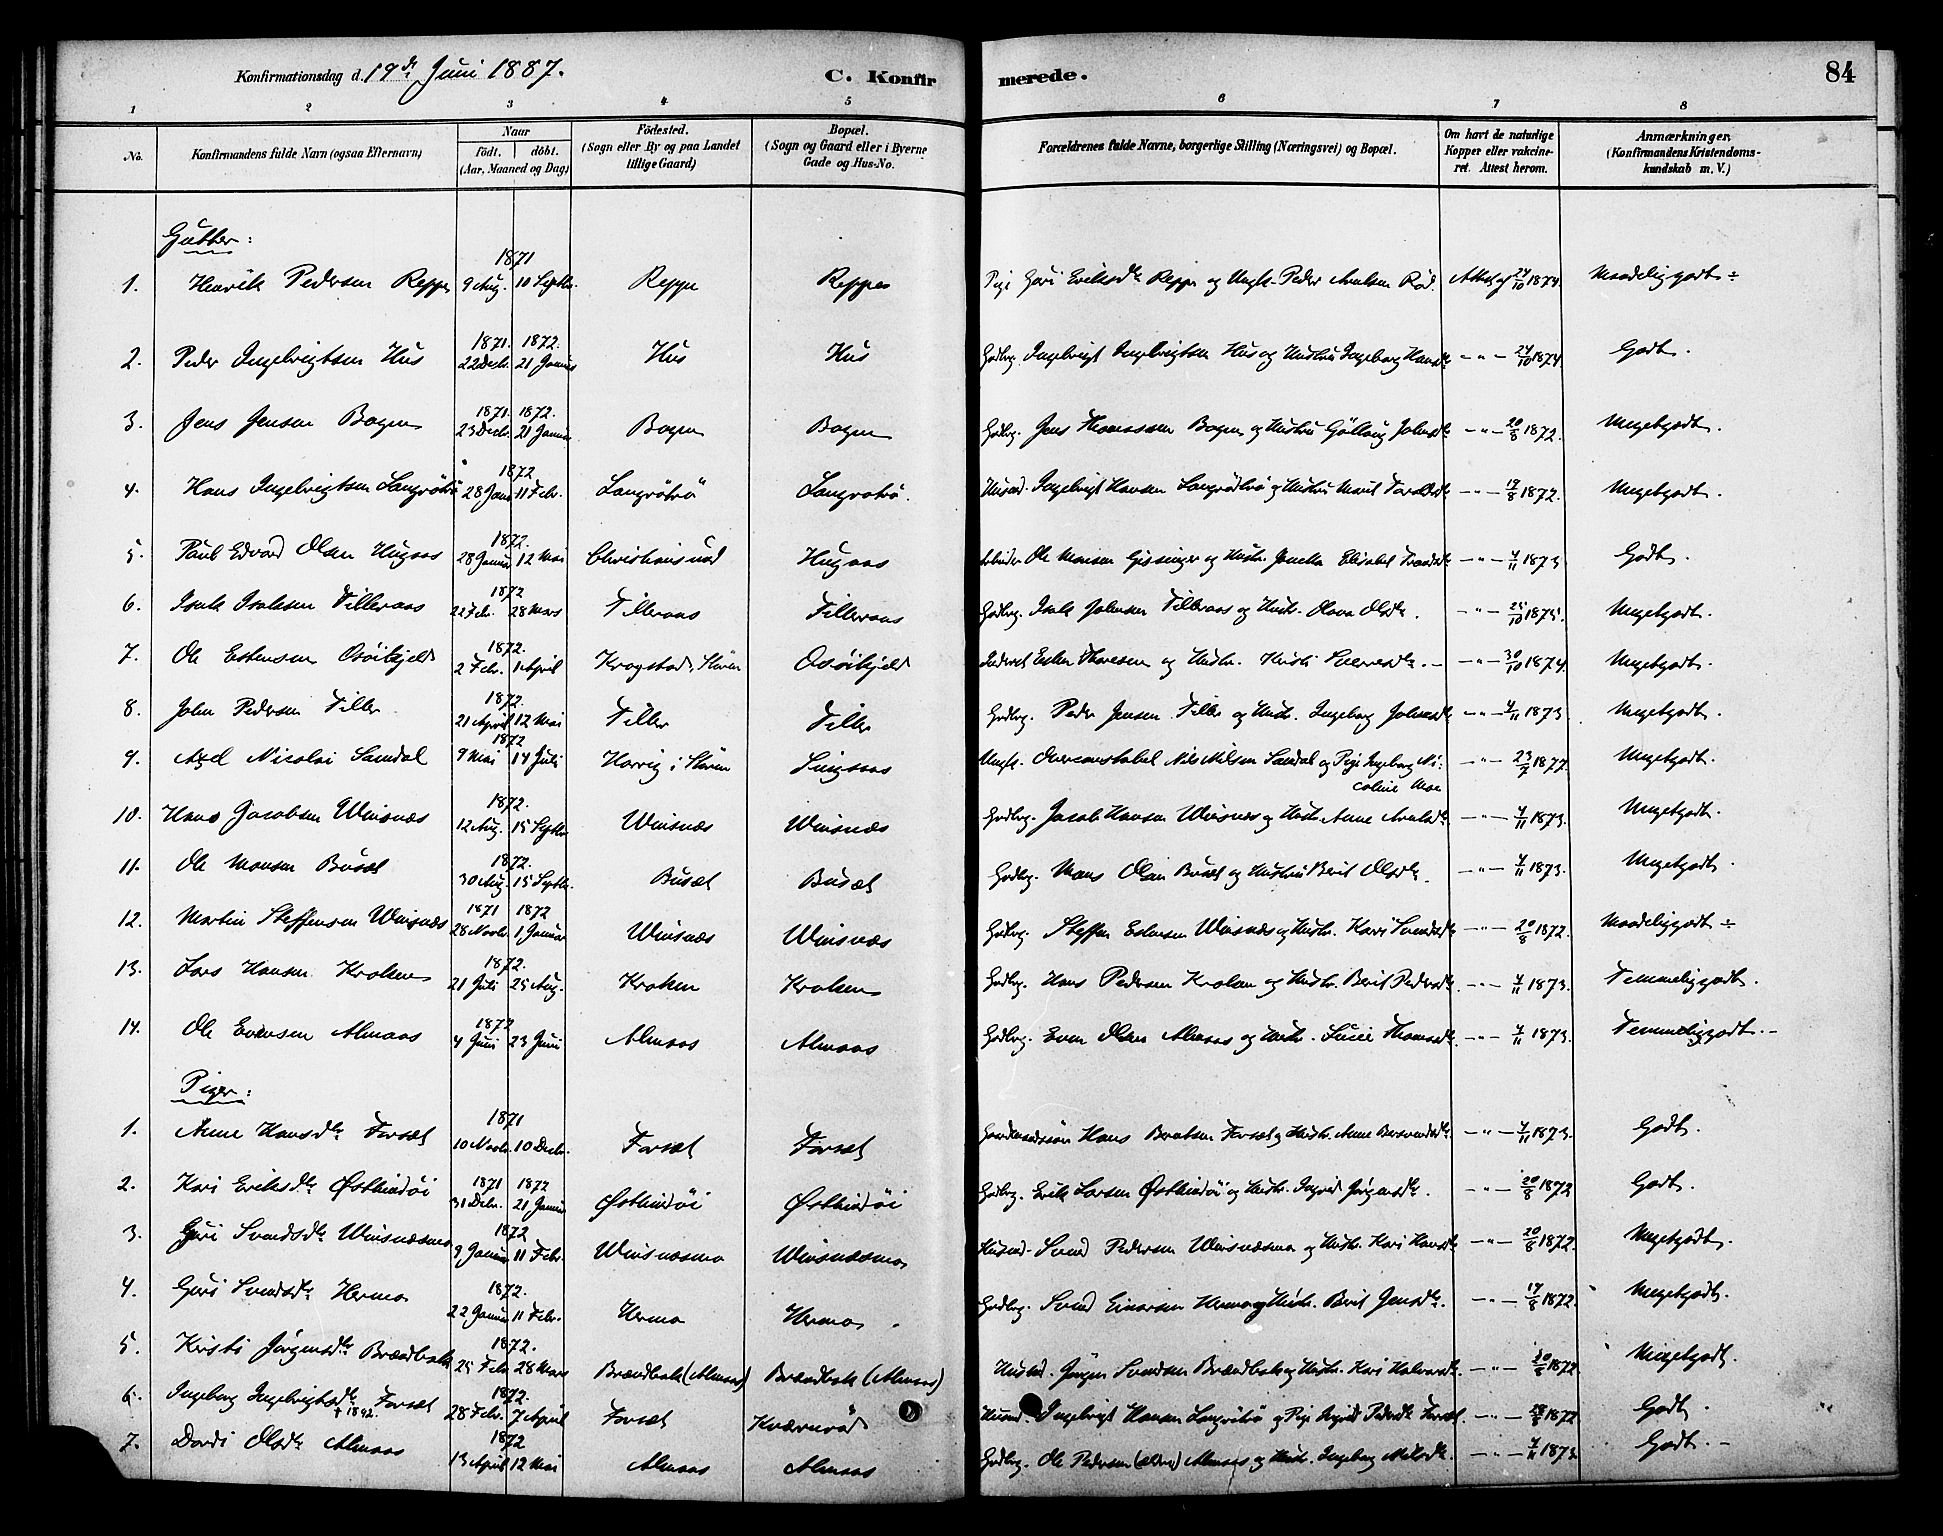 Konfirmationsdag d. 19de Juni 1887. C. Konfirmerede. 84
1 2 3 4 5 6 7 8
No. Konfirmandens fulde Navn (ogsaa Efternavn) Naar födt. döbt. (Aar, Maaned og Dag) Födested. (Sogn eller By og paa Landet tillige Gaard) Bopæl. (Sogn og Gaard eller i Byerne Gade og Hus-No. Forældrenes fulde Navne, borgerlige Stilling (Næringsvei) og Bopæl. Om havt de naturlige Kopper eller vakcineret. Attest herom. Anmærkninger. (Konfirmandens Kristendomskundskab m. V.)
Gutter:
1. Henrik Pedersen Reppe 1871 9 Aug. 10 Septbr. Reppe Reppe Pige Guri Eriksdtr Reppe og Ungk. Peder Arntsen Rød. Attest af 24/10 1874. Maadelig godt ÷
2. Peder Ingebrigtsen Hus 1871. 22 Decbr. 1872. 21 Januar Hus Hus Gdbrg. Ingebrigt Ingebrigtsen Hus og Hustru Ingeborg Hansdtr - " - 24/10 1874. Godt.
3. Jens Jensen Bogen 1871. 23 Decbr. 1872. 21 Januar Bogen Bogen Gdbrg. Jens Thomassen Bogen og Hustru Gjöllaug Johnsdtr - " - 20/8 1872. Megetgodt.
4. Hans Ingebrigtsen Langrötrö 1872 28 Janr 11 Febr. Langrötrö Langrotrö. Husmd. Ingebrigt Hansen Langrödtrö og Hustru Marit Toraldsdtr - " - 17/8 1872. Megetgodt.
5. Paul Edvard Olsen Hugaas 1872. 28 Januar 12 Mai Christiansund Hugaas Arbeider Ole Monsen Gissinger og Hustr. Elisabet - " - 4/11 1873 Godt.
6. Isak Isaksen Tilleraas 1872 22 Febr. 28 Mars Tilleraas Tilleraas Gdbrg. Isak Johnsen Tilleraas og Hustr. Olava Olsdtr. - " - 25/10 1875. Megetgodt.
7. Ole Estensen Osöikjeld 1872. 2 Febr. 1 April Krogstad, Stören Osöikjeld Inderst Esten Thoresen og Hustr. Kirsti Sveresdtr. - " - 30/10 1874. Megetgodt.
8. John Pedersen Tiller 1872. 21 April 12 Mai Tiller Tiller Gdbrg. Peder Jensen Tiller og Hustr. Ingeborg Johnsdtr - " - 4/11 1873. Megetgodt.
9. Axel Nicolai Samdal 1872 9 Mai 14 Juli Horrig i Stören Singsaas Ungk. Overconstabel Nils Nilsen Samdal og Pige Ingeborg Nicoline Moe - " - 23/7 1877. Megetgodt.
10. Hans Jacobsen Winsnæs 1872. 12 Aug. 15 Septbr Winsnæs Winsnæs Gdbrg. Jacob Hansen Winsnæs og Hustr. Anne Arntsdtr. - " - 4/11 1873. Megetgodt.
11. Ole Monsen Busæt 1872. 30 Aug. 15 Septbr. Busæt Busæt Gdbrg. Mons Olsen Busæt og Hustru Berit Olsdtr. - " - 4/11 1873. Megetgodt.
12. Martin Steffensen Winsnæs 1871 28 Novbr. 1872 1 Januar Winsnæs Winsnæs Gdbrg. Steffen Estensen Winsnæs og Hustr. Kari Svendsdtr - " - 20/8 1872. Maadeliggodt ÷
13. Lars Hansen Kroken 1872. 21 Juli 25 Aug. Kroken Kroken Gdbrg. Hans Pedersen Kroken og Hustr. Berit Pedersdtr. - " - 4/11 1873. Temmeliggodt.
14. Ole Evensen Almaas 1872 4 Juni 23 Juni Almaas Almaas Gdbrg. Even Olsen Almaas og Hustr. Lucie Thomasdtr. - " - 4/11 1873. Temmeliggodt.-
Piger:
1. Anne Hansdtr Forsæt 1871 10 Novbr. 10 Decbr. Forsæt Forsæt Gaardmandssön Hans Berntsen Forsæt og Hustr. Anne Bersvendsdtr. - " - 4/11 1873. Godt.
2. Kari Eriksdtr Østhindöi 1871 31 Decbr. 1872 21 Januar Østhindöi Østhindöi Gdbrg. Erik Larsen Østhindöi og Hustr. Ingrid Jörgensdtr. - " - 20/8 1872 Godt.
3. Guri Svendsdtr Winsnæsmo 1872 9 Januar 11 Febr. Winsnæsmo Winsnæsmo Husmd. Svend Pedersen Winsnæsmo og Hustr. Kari Hansdtr - " - 20/8 1872. Megetgodt.
4. Guri Svendsdtr Hermo 1872. 22 Januar 11 Febr. Hermo Hermo. Gdbrg. Svend Einarsen Hermo og Hustr. Berit Jensdtr. - " - 17/8 1872. Megetgodt.
5. Kirsti Jörgensdtr. Brændbak 1872. 25 Febr 28 Mars Brændbak (Almaas) Brændbak (Almaas) Husmd. Jörgen Svendsen Brændbak og Hustr. Kari Halvorsdtr. - " - 20/8 1872. Megetgodt.
6. Ingeborg Ingebrigtsdtr Forsæt † 1892. 1872. 28 Febr. 7 April Forsæt Kværnröd Husmd. Ingebrigt Hansen Langrötrö og Pige Ingrid Pedersdtr Forsæt. - " - 1872 Godt.
7. Dordi Olsdtr Almaas 1872 13 April 12 Mai Almaas Almaas Gdbrg. Ole Pedersen (Ældre) Almaas og Hustr. Ingeborg Nilsdtr. - " - 4/11 1873. Godt.-